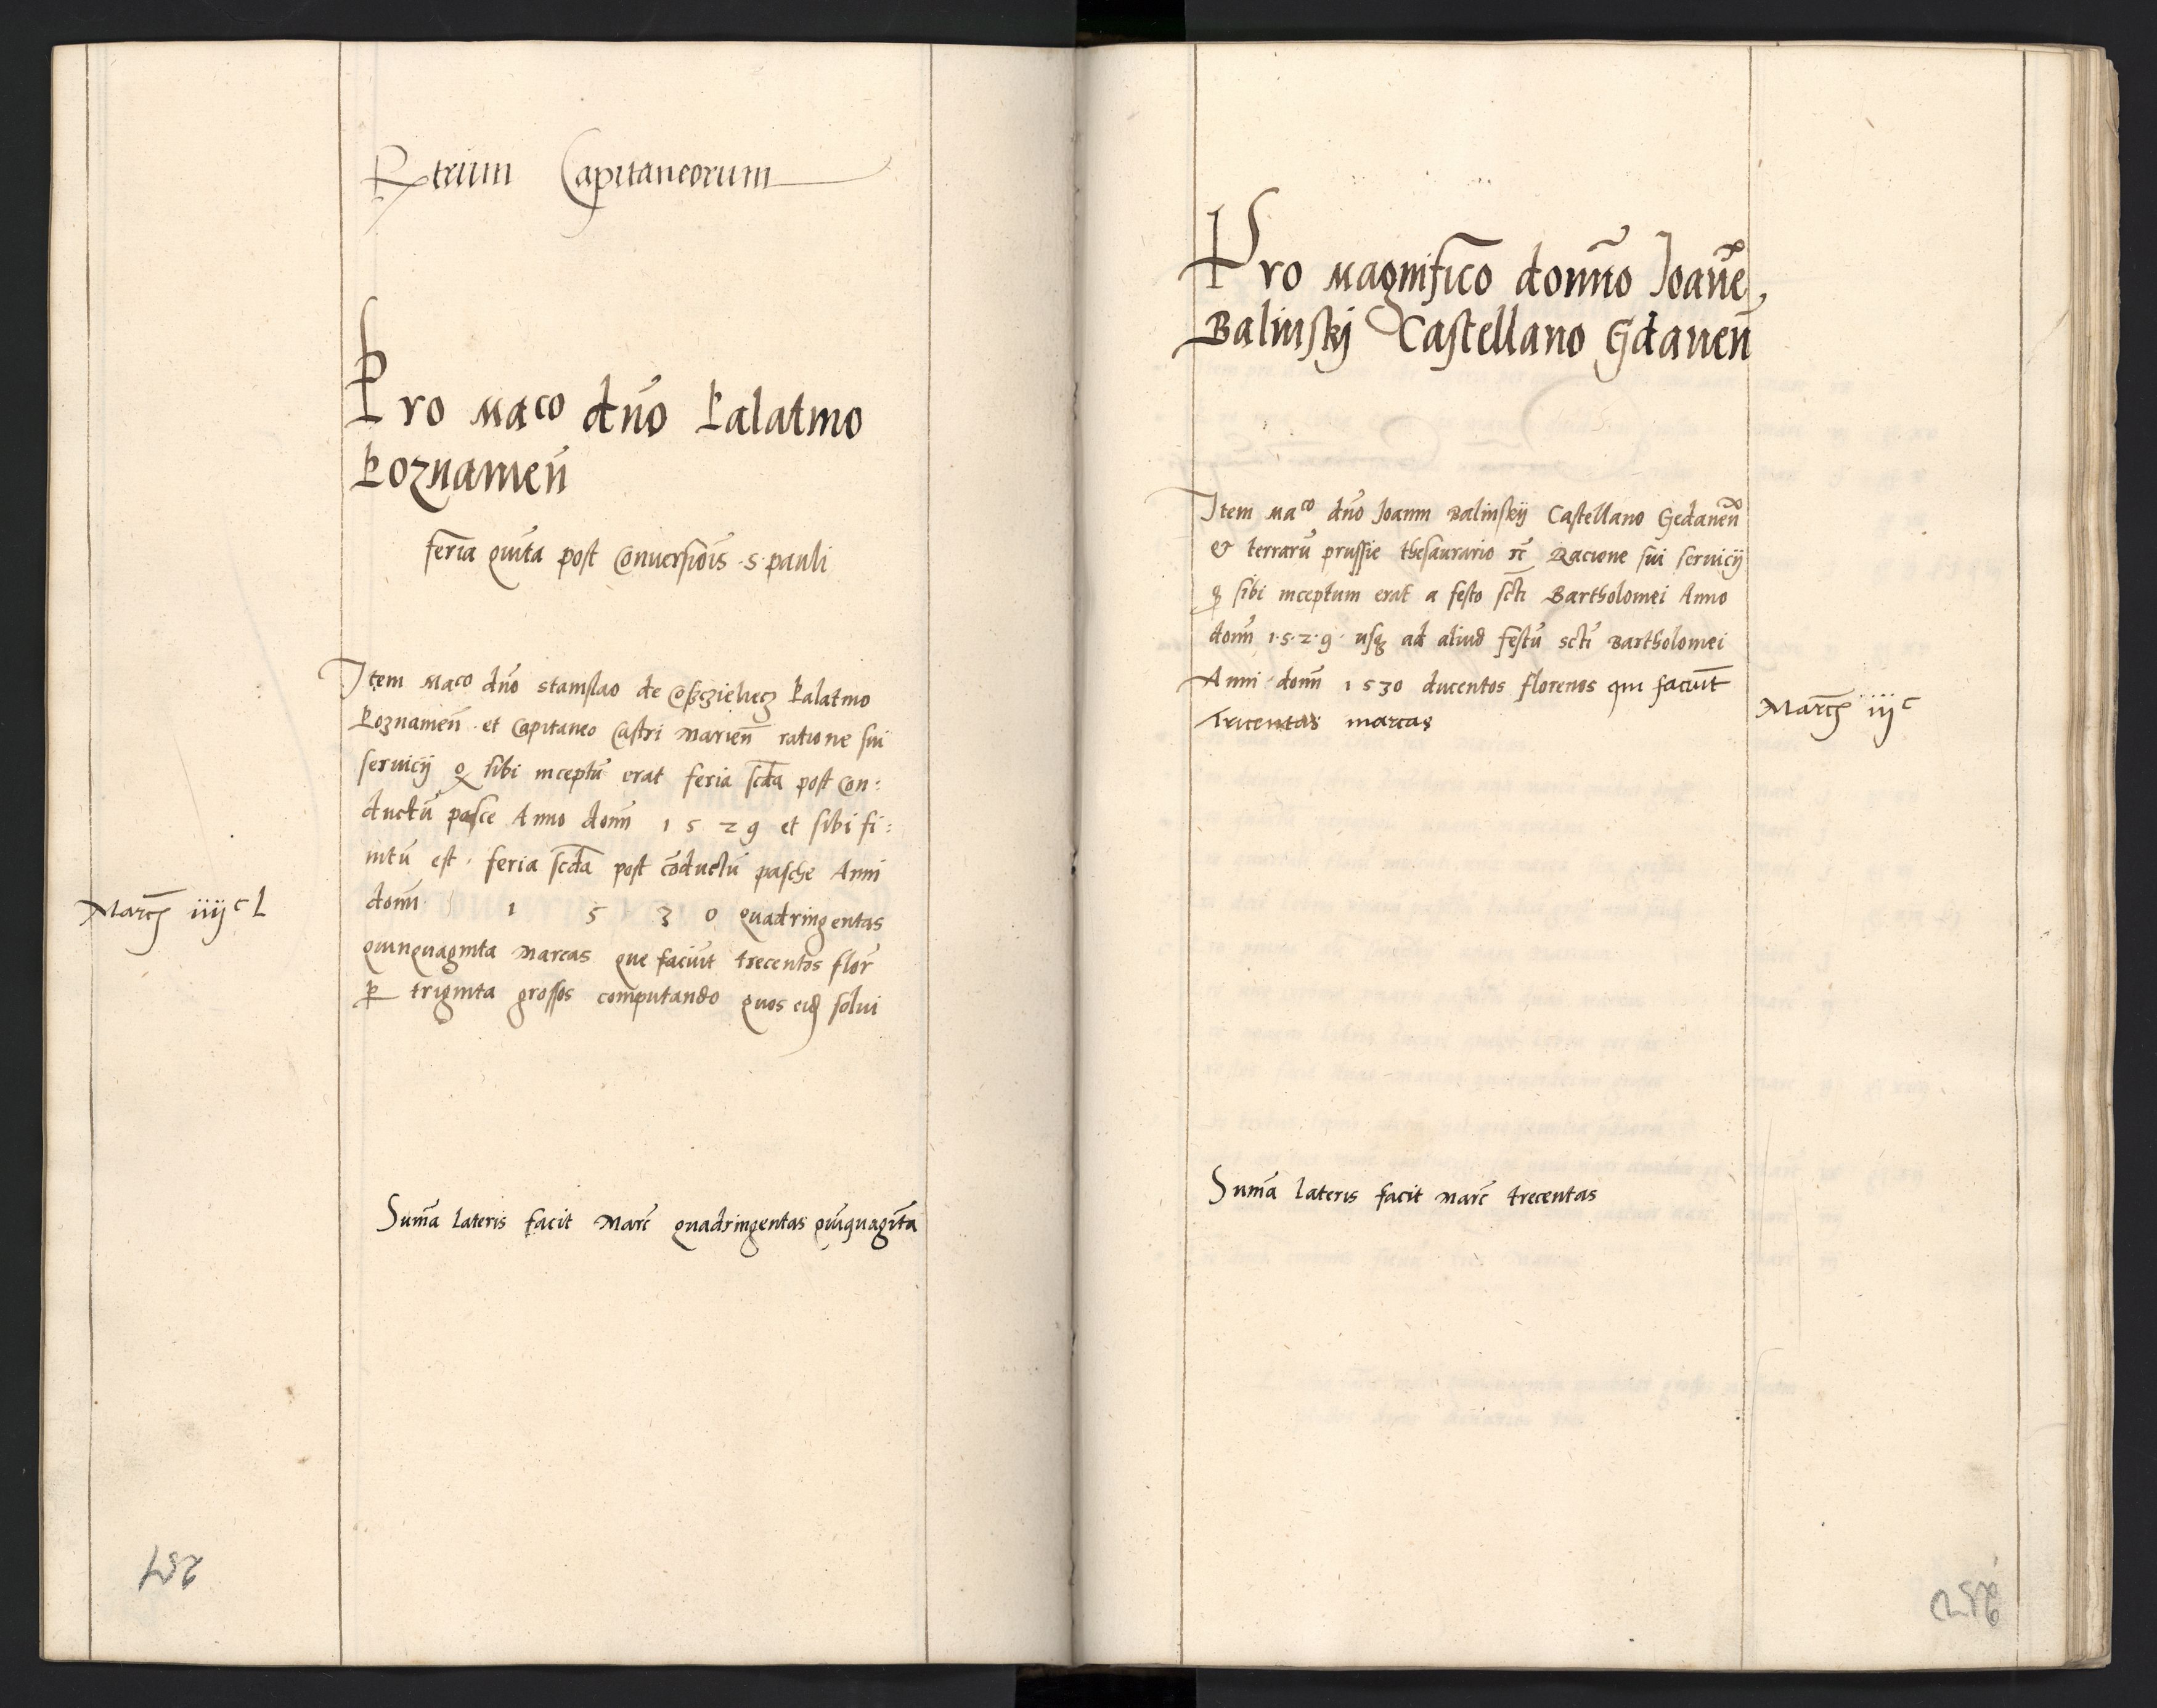 trium Capitaneorum
Pro Maco dn̄o Palatino
Poznanien̄
feria qui̅ta post Conuersiōis .S. pauli
Item Maco dn̄o Stanislao de Palatino
Poznanien̄ . et Capitaneo Castri Marien̄ ratione sui
seruicij q sibi inceptū erat feria scd̄a post Con:
ductū pasce Anno domi̅ 1 5 2 9 et sibi fi:
nitū est . feria scd̄a post cōductū pasche Anni
domi̅ 1 5 3 0 quadringentas
Marc̄ iiijᶜ L
quinquaginta Marcas que faciūt trecentos flor̄
ꝑ triginta grossos computando quos eid solui
Sum̄a lateris facit Marc̄ quadringentas qui̅quagi̅ta
257
Pro Magnifico domi̅no Joan̄e
Balinskÿ Castellano Gdanen̄
Item Maᶜᵒ dn̄o Joanni Balinskij Castellano Gedanen̄
& terrarū prussie thesaurario rc̄ Racione sui seruicij
q sibi inceptum erat a festo sct̄i Bartholomei Anno
domi̅ 1·5·2·9· usqꝫ ad aliud festū sct̄i Bartholomei
Anni domi̅ 1530 ducentos florenos qui faciūt
Tricentas marcas
Marc̄ iijᶜ
Sum̄a lateris facit Marc̄ trecentas